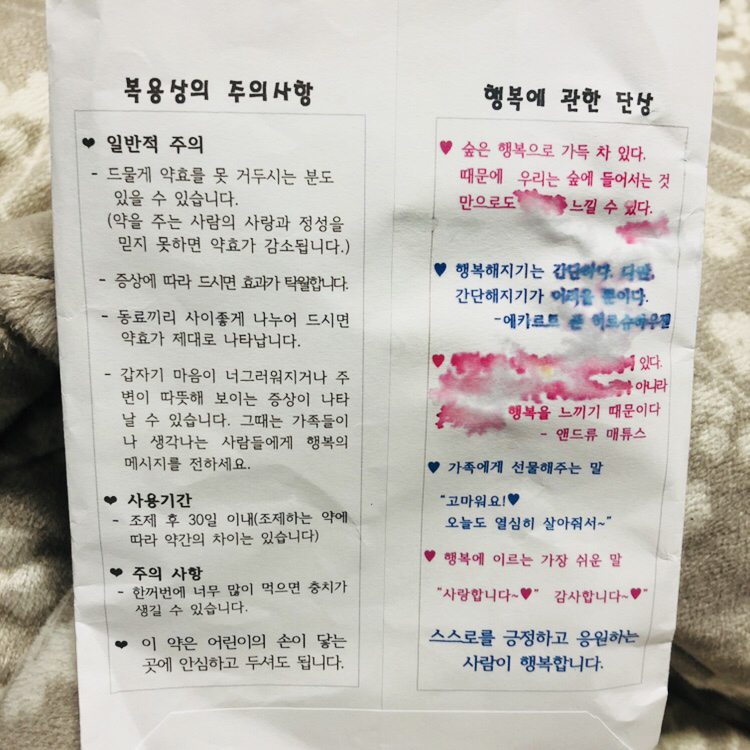 복용상의 주의사항
❤ 일반적 주의
- 드물게 약효를 못 거두시는 분도
있을 수 있습니다.
(약을 주는 사람의 사랑과 정성을
믿지 못하면 약효가 감소됩니다.)
- 증상에 따라 드시면 효과가 탁월합니다.
- 동료끼리 사이좋게 나누어 드시면
약효가 제대로 나타납니다.
- 갑자기 마음이 너그러워지거나 주
변이 따뜻해 보이는 증상이 나타
날 수 있습니다. 그때는 가족들이
나 생각나는 사람들에게 행복의
메시지를 전하세요..
❤ 사용기간
- 조제 후 30일 이내(조제하는 약에
따라 약간의 차이는 있습니다)
❤ 주의 사항
- 한꺼번에 너무 많이 먹으면 충치가
생길 수 있습니다.
❤ 이 약은 어린이의 손이 닿는
곳에 안심하고 두셔도 됩니다.
행복에 관한 단상
♥ 숲은 행복으로 가득 차 있다.
때문에 우리는 숲에 들어서는 것
만으로도 느낄 수 있다.
♥ 행복해지기는 간단하다. 다만,
간단해지기가 어려울 뿐이다.
-에카르트 폰
♥ 있다.
아니라
행복을 느끼기 때문이다
- 앤드류 매튜스
♥ 가족에게 선물해주는 말
"고마워요!♥
오늘도 열심히 살아줘서~"
♥ 행복에 이르는 가장 쉬운 말
"사랑합니다~♥" 감사합니다~♥"
스스로를 긍정하고 응원하는
사람이 행복합니다.